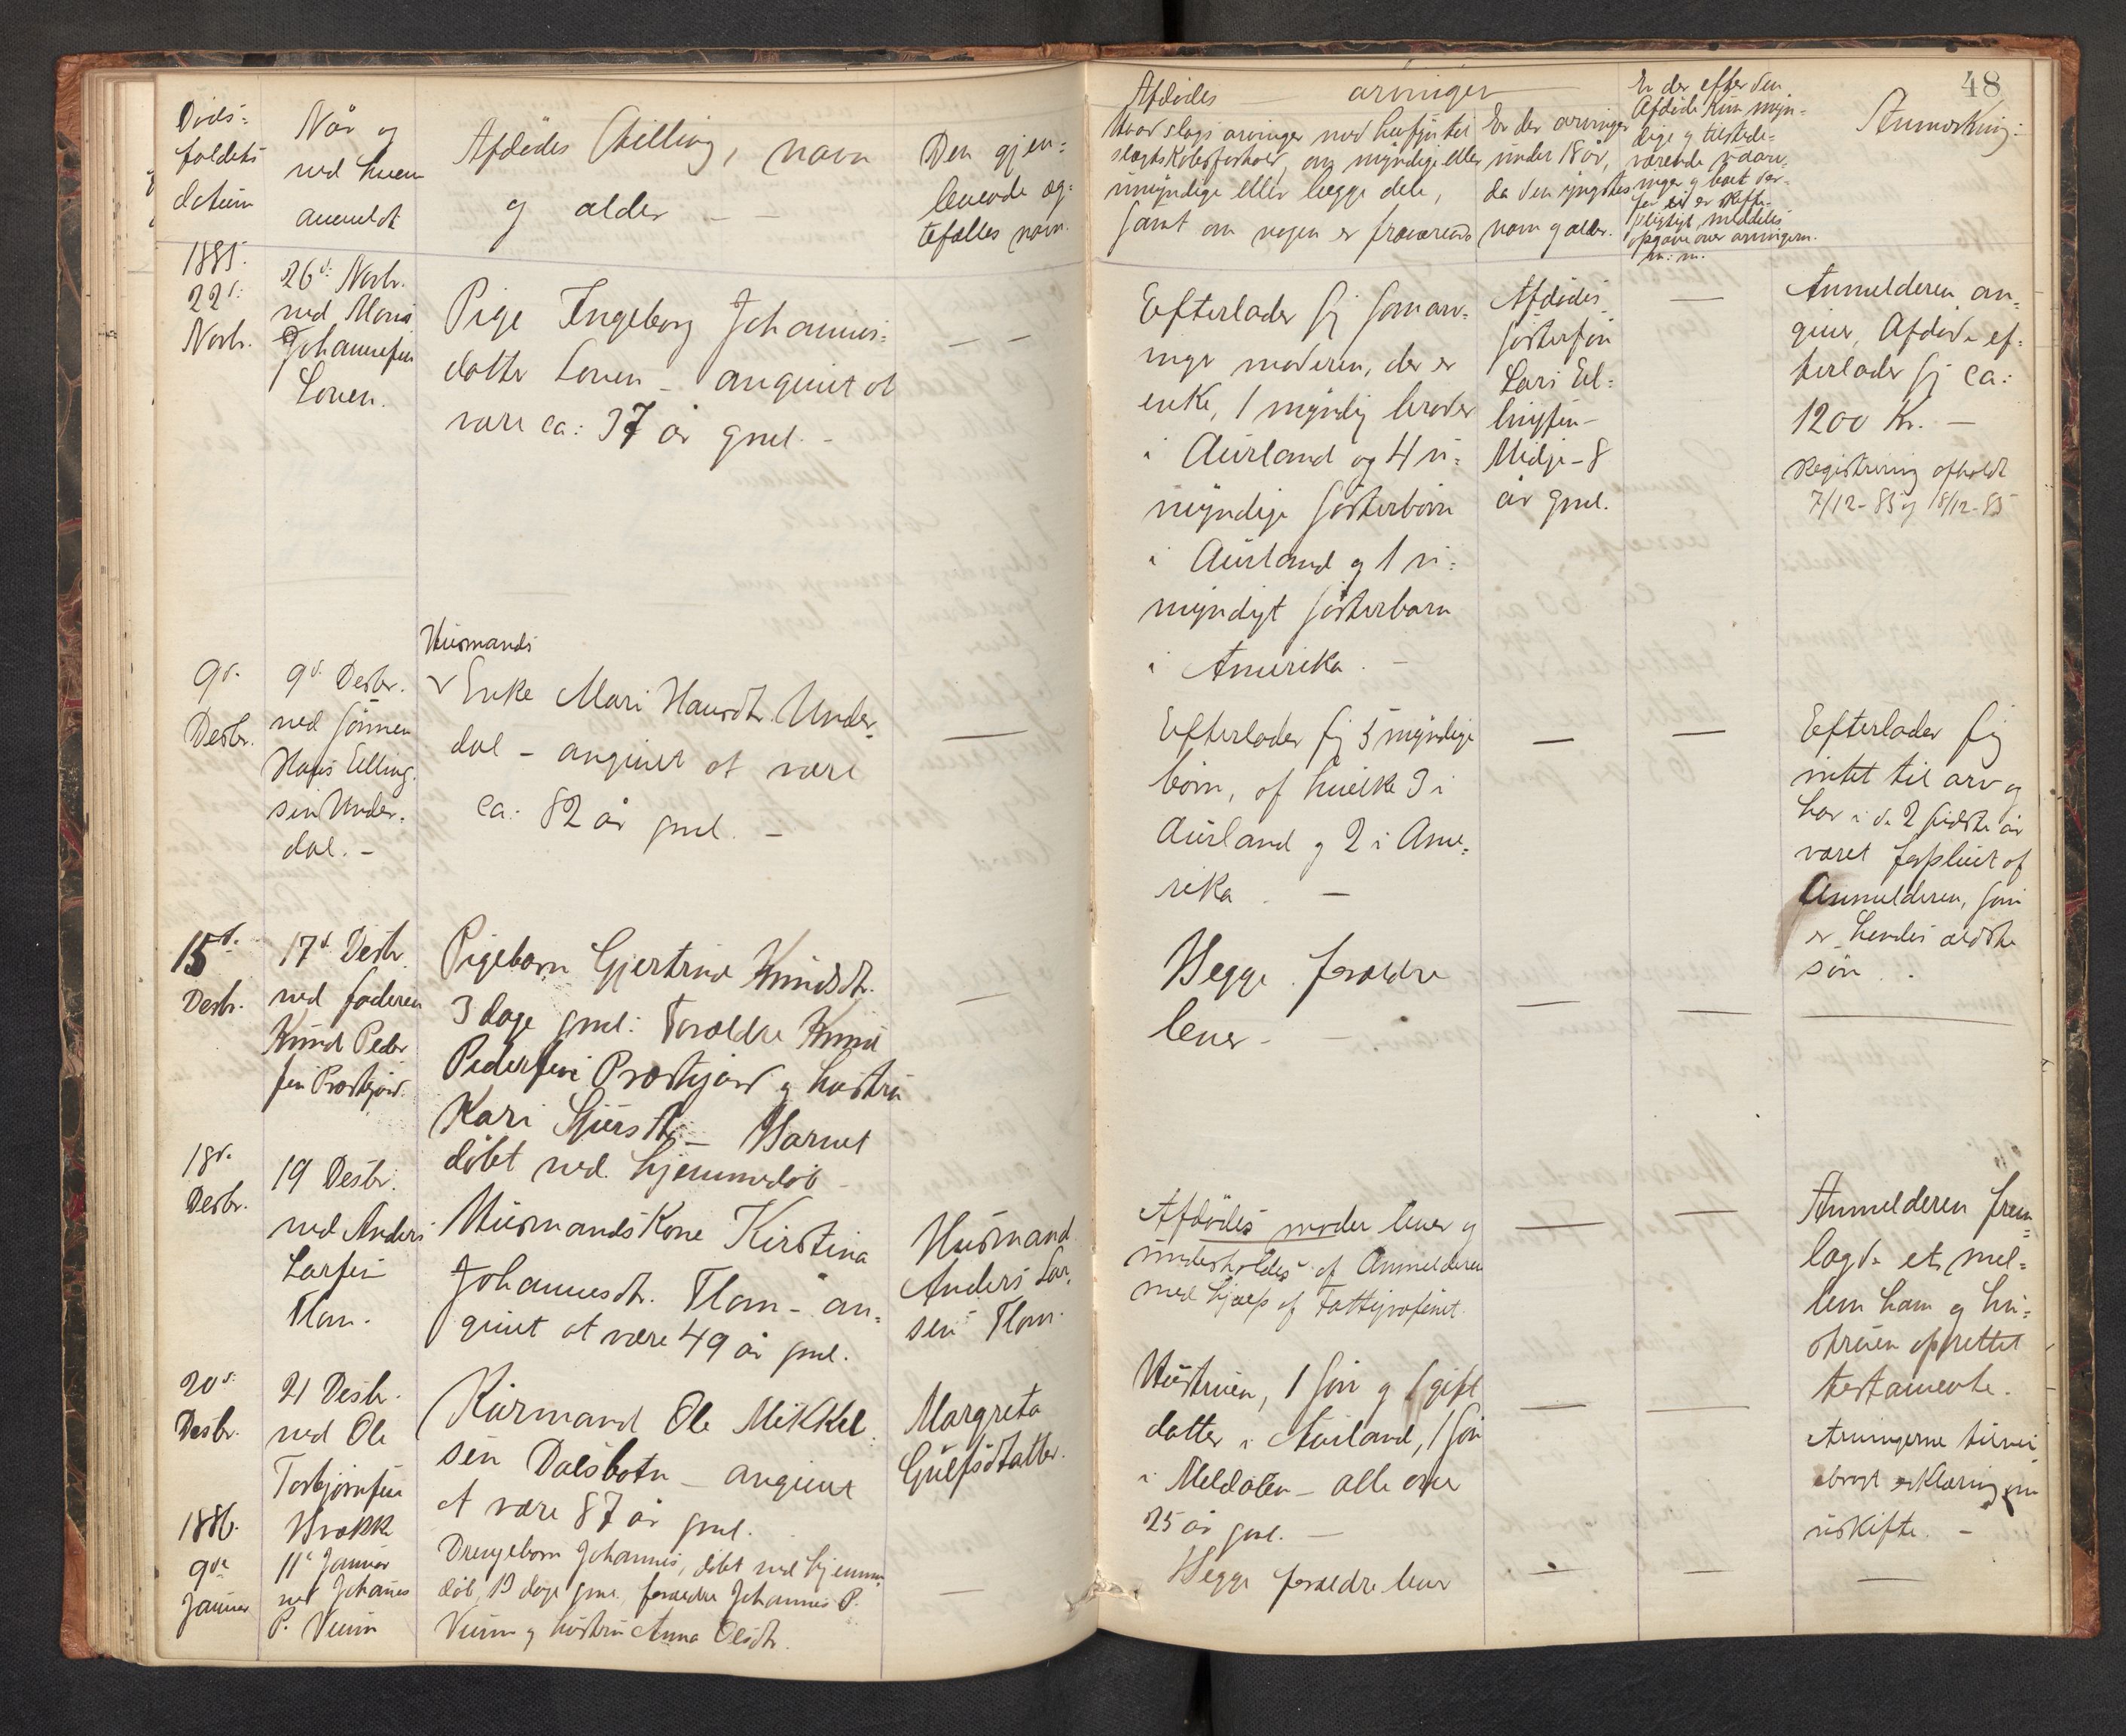 48
Døds=
faldets
datum
Når og
ved hvem
anmeldt
Afdødes Stilling, navn
og alder - -
Den gjen=
levende æg=
tefælles navn.
Afdødes - arvinger
Hvad slags arvinger med hensyn til
slægtskabsforhold, om myndige eller
umyndige eller begge dele,
samt om nogen er fraværende
Er der arvinger
under 18 år,
da den yngstes
navn og alder.
Er der efter den
Afdøde kun myn-
dige og tilstede-
værende arvin-
m: m.
Anmerkning:
1885.
22d:
Novbr.
26d: Novbr.
ved Mons
Johannesen
Loven.
Pige Ingeborg Johannes=
datter Loven - angivet at
være ca: 37 år gml. -
- -
Efterlader sig som arv=
inger moderen, der er
enke, 1 myndig broder
i Aurland og 4 u=
myndige søsterbørn
i Aurland og 1 u=
myndigt søsterbarn
i Amerika. -
Afdødes
søstersøn
Lars El=
lingsen
Midje - 8
år gml.
—
Anmelderen an=
giver, Afdøde ef=
terlader sig ca:
1200 Kr. -
Registrering afholdt
7/12-85 og 18/12-85
9d.
Desbr.
9d. Desbr.
ved sønnen
Hans Elling
sen Under=
dal. -
Husmands
Enke Mari Hansdtr. Under=
dal - angivet at være
ca: 82 år gml. -
—
Efterlader sig 5 myndige
børn, af hvilke 3 i
Aurland og 2 i Ame=
rika. -
—
—
Efterlader sig
intet til arv og
har i de 2 sidste år
været forpleiet af
Anmelderen, som
er hendes ældste
søn. -
15d.
Desbr.
17d. Desbr.
ved faderen
Knud Peder
sen Prestgård.
Pigebarn Gjertrud Knudsdtr.
3 dage gml: Forældre Knud
Pedersen Prestgård og hustru
Kari Sjursdtr. - Barnet
døbt ved hjemmedåb -
—
Begge forældre
lever - -
—
—
—
18d.
Desbr.
19 Desbr.
ved Anders
Larsen
Flam.
Husmandskone Kirstina
Johannesdtr. Flam - an=
givet at være 49 år gml.
Husmand
Anders Lar=
sen Flam.
Afdødes moder lever og
underholdes af Anmelderen
med hjælp af Fattigvæsenet.
—
—
Anmelderen frem=
lagde et mel=
lem ham og hu=
struen oprettet
testamente.
20d:
Desbr.
21 Desbr.
ved Ole
Torbjørnsen
Brekke
Kårmand Ole Mikkel=
sen Dalsbotn - angivet
at være 87 år gml.
Margreta
Gulfsdtatter.
Hustruen, 1 søn og 1 gift
datter i Aurland, 1 søn
i Meldalen - alle over
25 år gml. -
—
—
Arvingerne tilvei
bragt erklæring om
uskifte. -
1886.
9de
Januar
11d Januar
ved Johanes
P. Vinm
Drengebarn Johannes, døbt ved hjemme
dåb, 13 dage gml, forældre Johannes P.
Vinm og hustru Anna Olsdtr.
—
Begge forældre lever
—
—
—